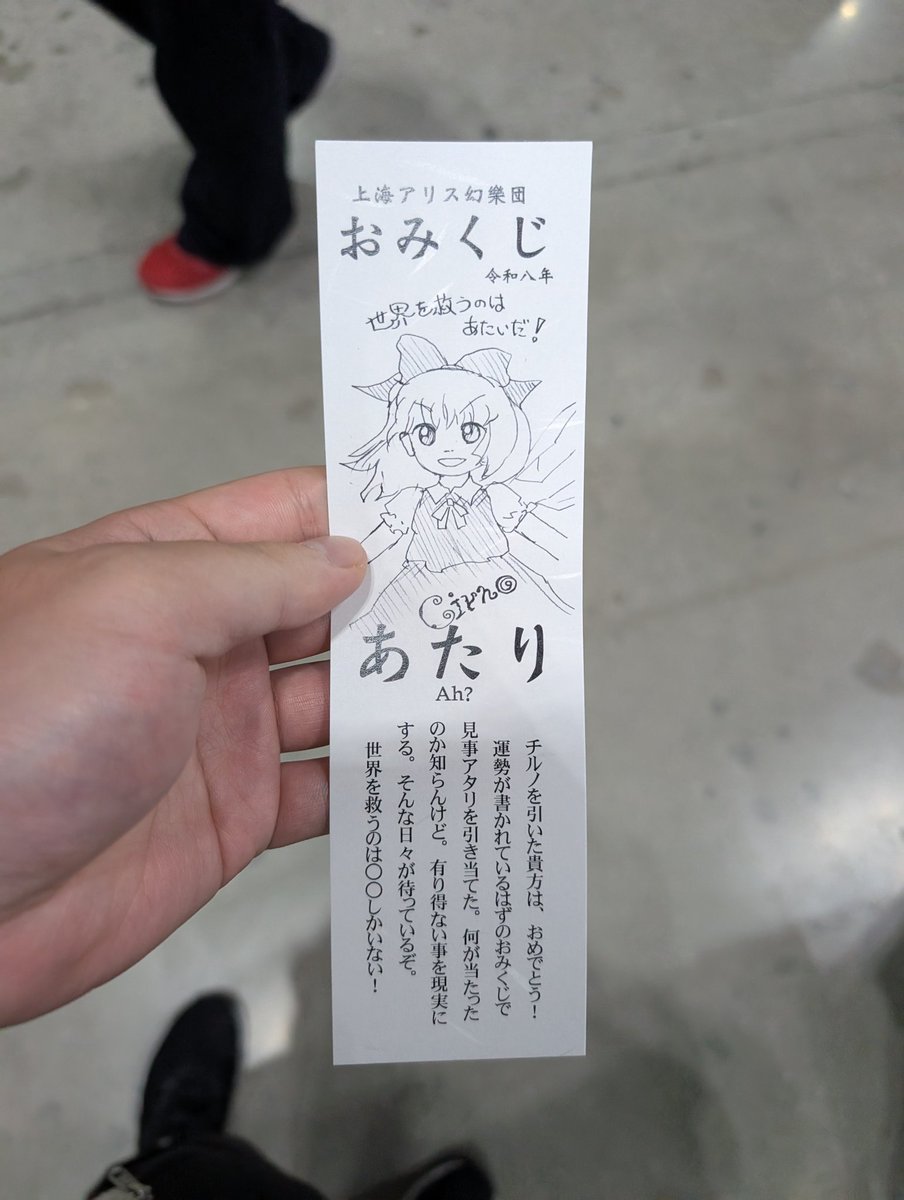 上海アリス幻樂団
おみくじ
令和八年
世界を救うのは
あたいだ!
Cirno
あたり
Ah?
チルノを引いた貴方は、おめでとう!
運勢が書かれているはずのおみくじで
見事アタリを引き当てた。何が当たった
のか知らんけど。有り得ない事を現実に
する。そんな日々が待っているぞ。
世界を救うのは〇〇しかいない!